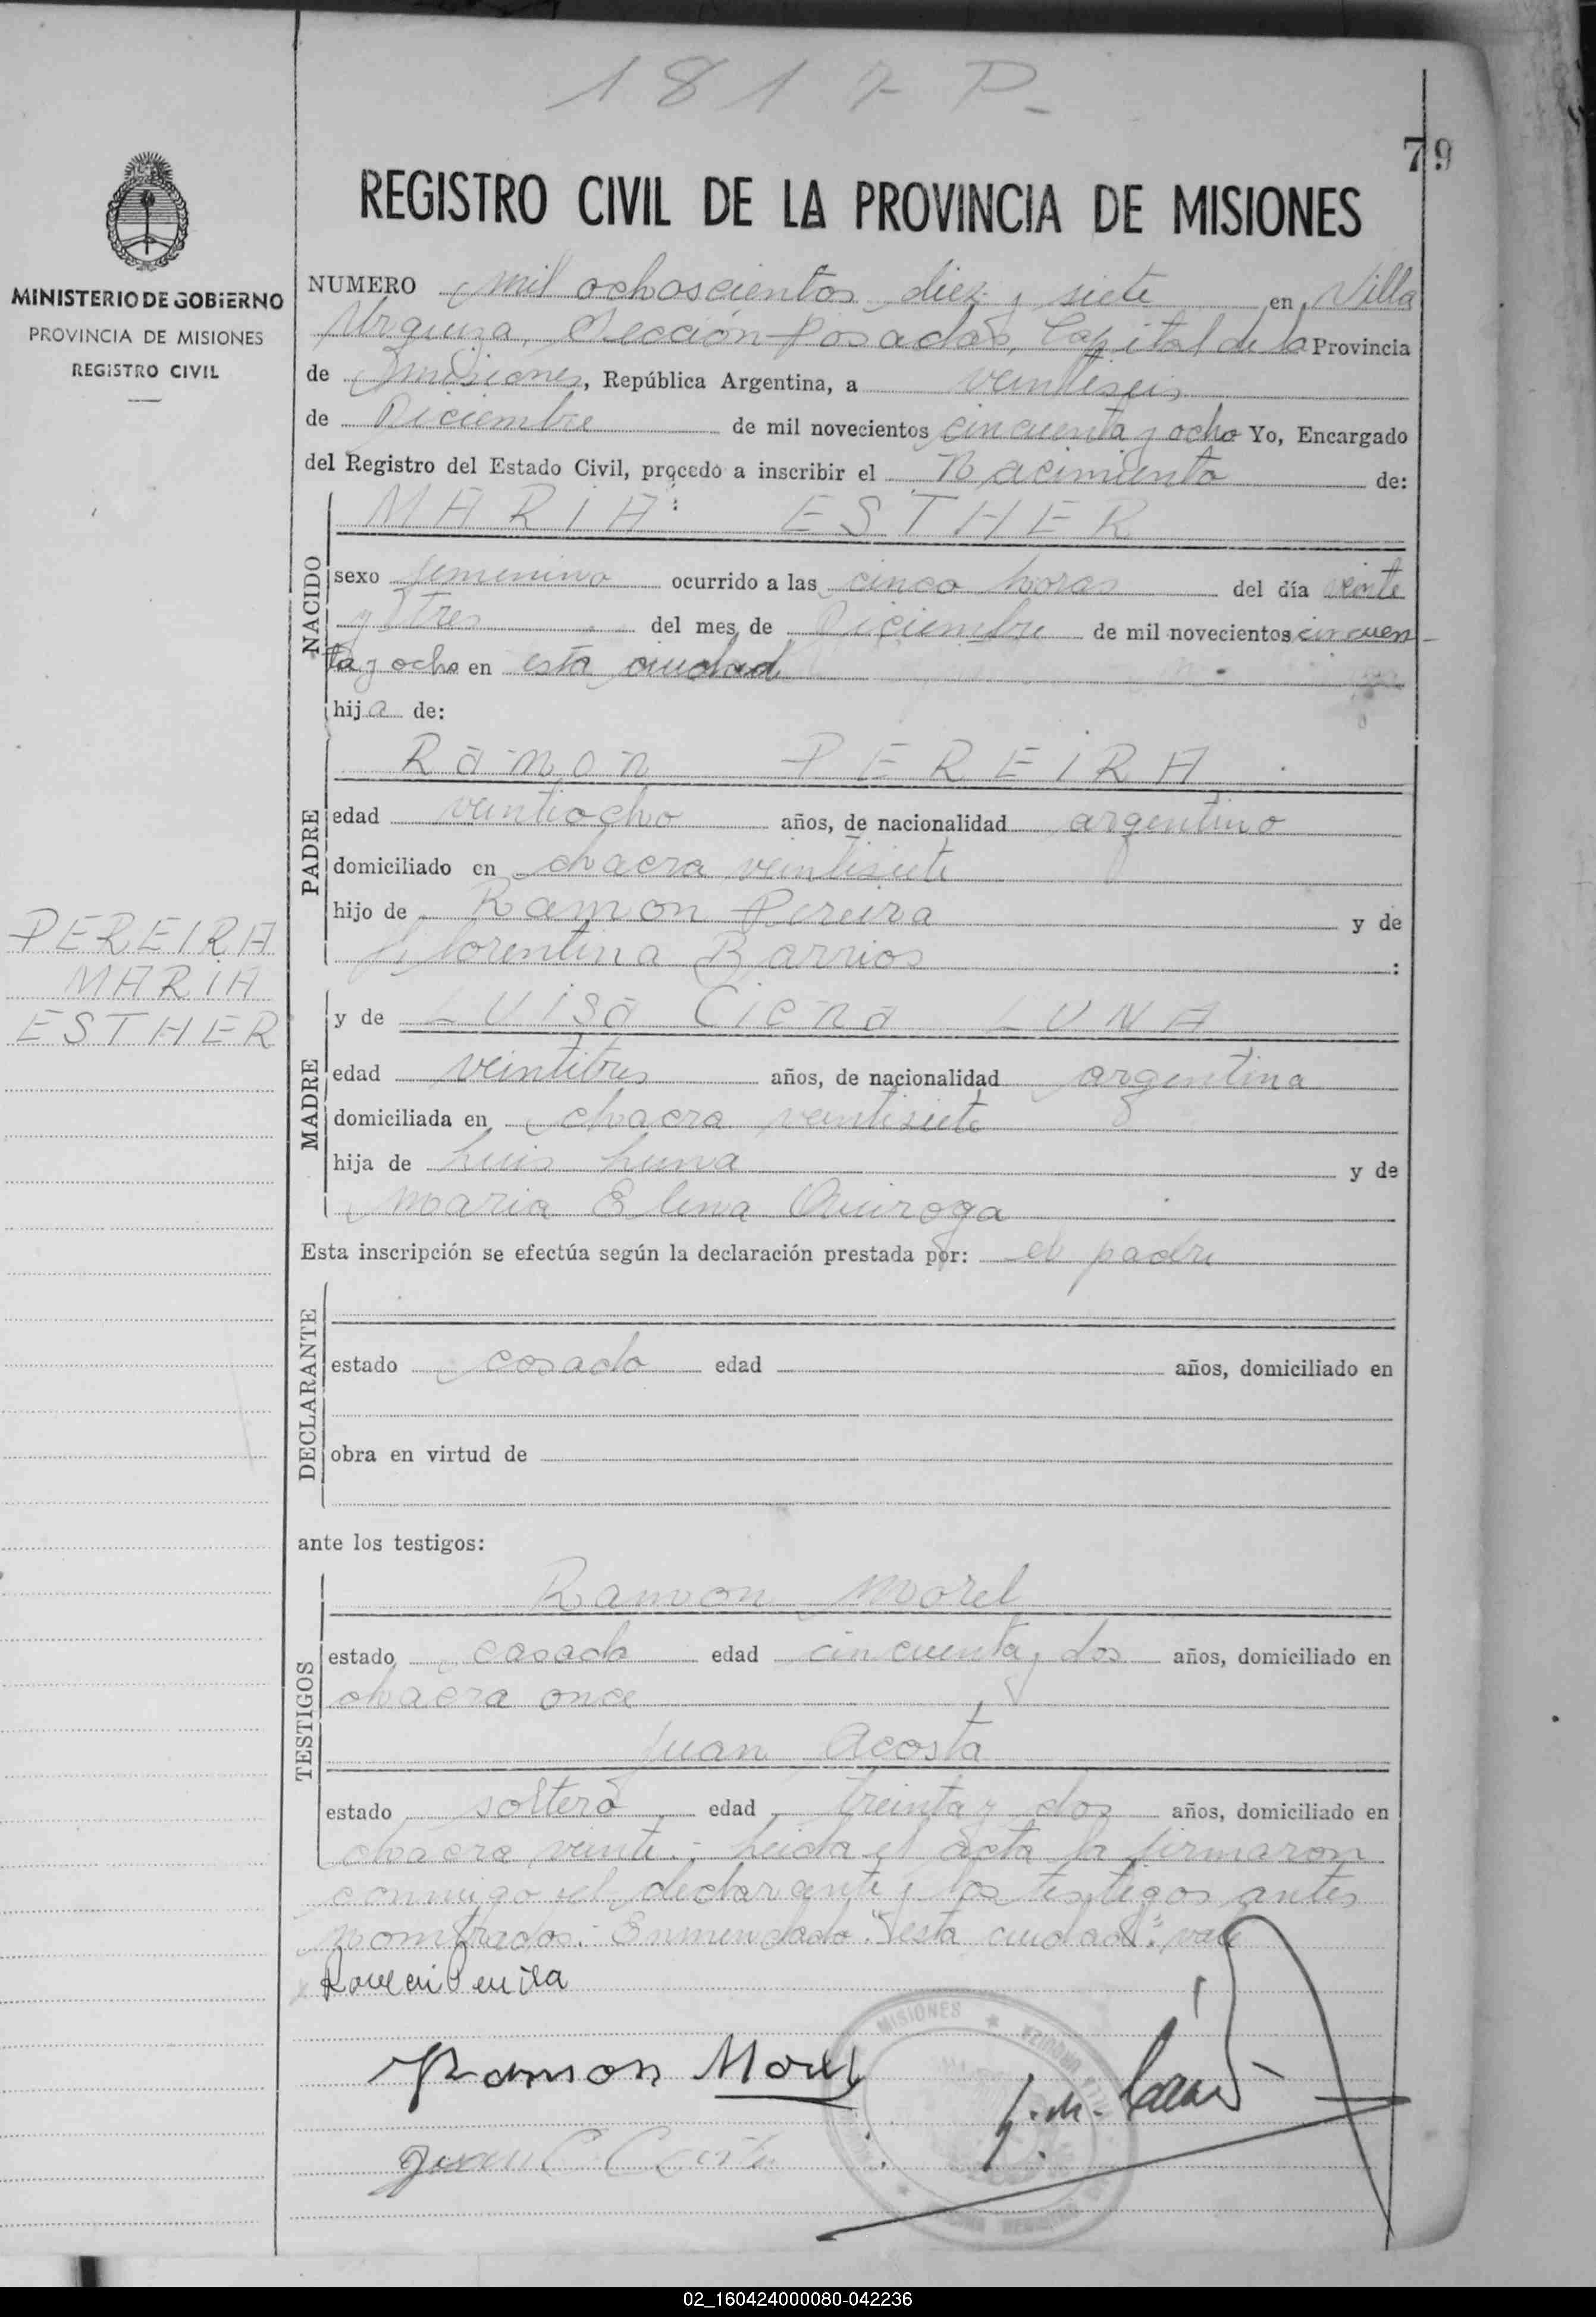 1817 P.
79
MINISTERIO DE GOBIERNO
PROVINCIA DE MISIONES
REGISTRO CIVIL
REGISTRO CIVIL DE LA PROVINCIA DE MISIONES
NUMERO mil ochoscientos diez y siete en Villa
Urquiza, Sección Posadas, Capital de la Provincia
de Misiones, República Argentina, a veintiseis
de Diciembre de mil novecientos cincuenta y ocho Yo, Encargado
del Registro del Estado Civil, procedo a inscribir el Nacimiento de:
NACIDO
MARIA ESTHER
sexo femenino ocurrido a las cinco horas del día veinte
y tres del mes de Diciembre de mil novecientos cincuen-
ta y ocho en esta ciudad
hija de:
PADRE
Ramon PEREIRA
edad veintiocho años, de nacionalidad argentino
domiciliado en chacra veintisiete
hijo de Ramon Pereira y de
Florentina Barrios :
PEREIRA
MARIA
ESTHER
MADRE
y de LUisa Ciena LUNA
edad veintitres años, de nacionalidad argentina
domiciliada en chacra veintisiete
hija de Luis Luna y de
Maria Elena Quiroga
Esta inscripción se efectúa según la declaración prestada por: el padre
DECLARANTE
estado casado edad años, domiciliado en
obra en virtud de
ante los testigos:
TESTIGOS
Ramon Morel
estado casado edad cincuenta y dos años, domiciliado en
chacra once
Juan Acosta
estado soltero edad treinta y dos años, domiciliado en
chacra veinte.- Leida el acta la firmaron
conmigo el declarante y los testigos antes
nombrados.- Enmendado: "esta ciudad": vale
Ramon Pereira
Ramon Morel
MISIONES
02_160424000080-042236